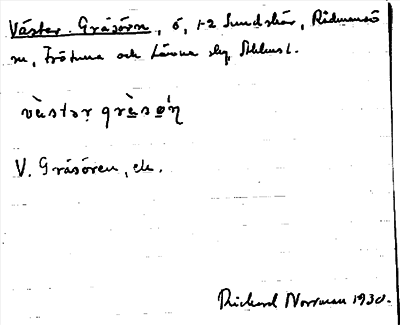 Väster Gräsörn, ö, 1-2 Sundskär, Rådmansö
sn, Frötuna och Länna skg, Sthlms l.
vàstər grὲsøń
V. Gräsören, ek.
Richard Norrman 1930.